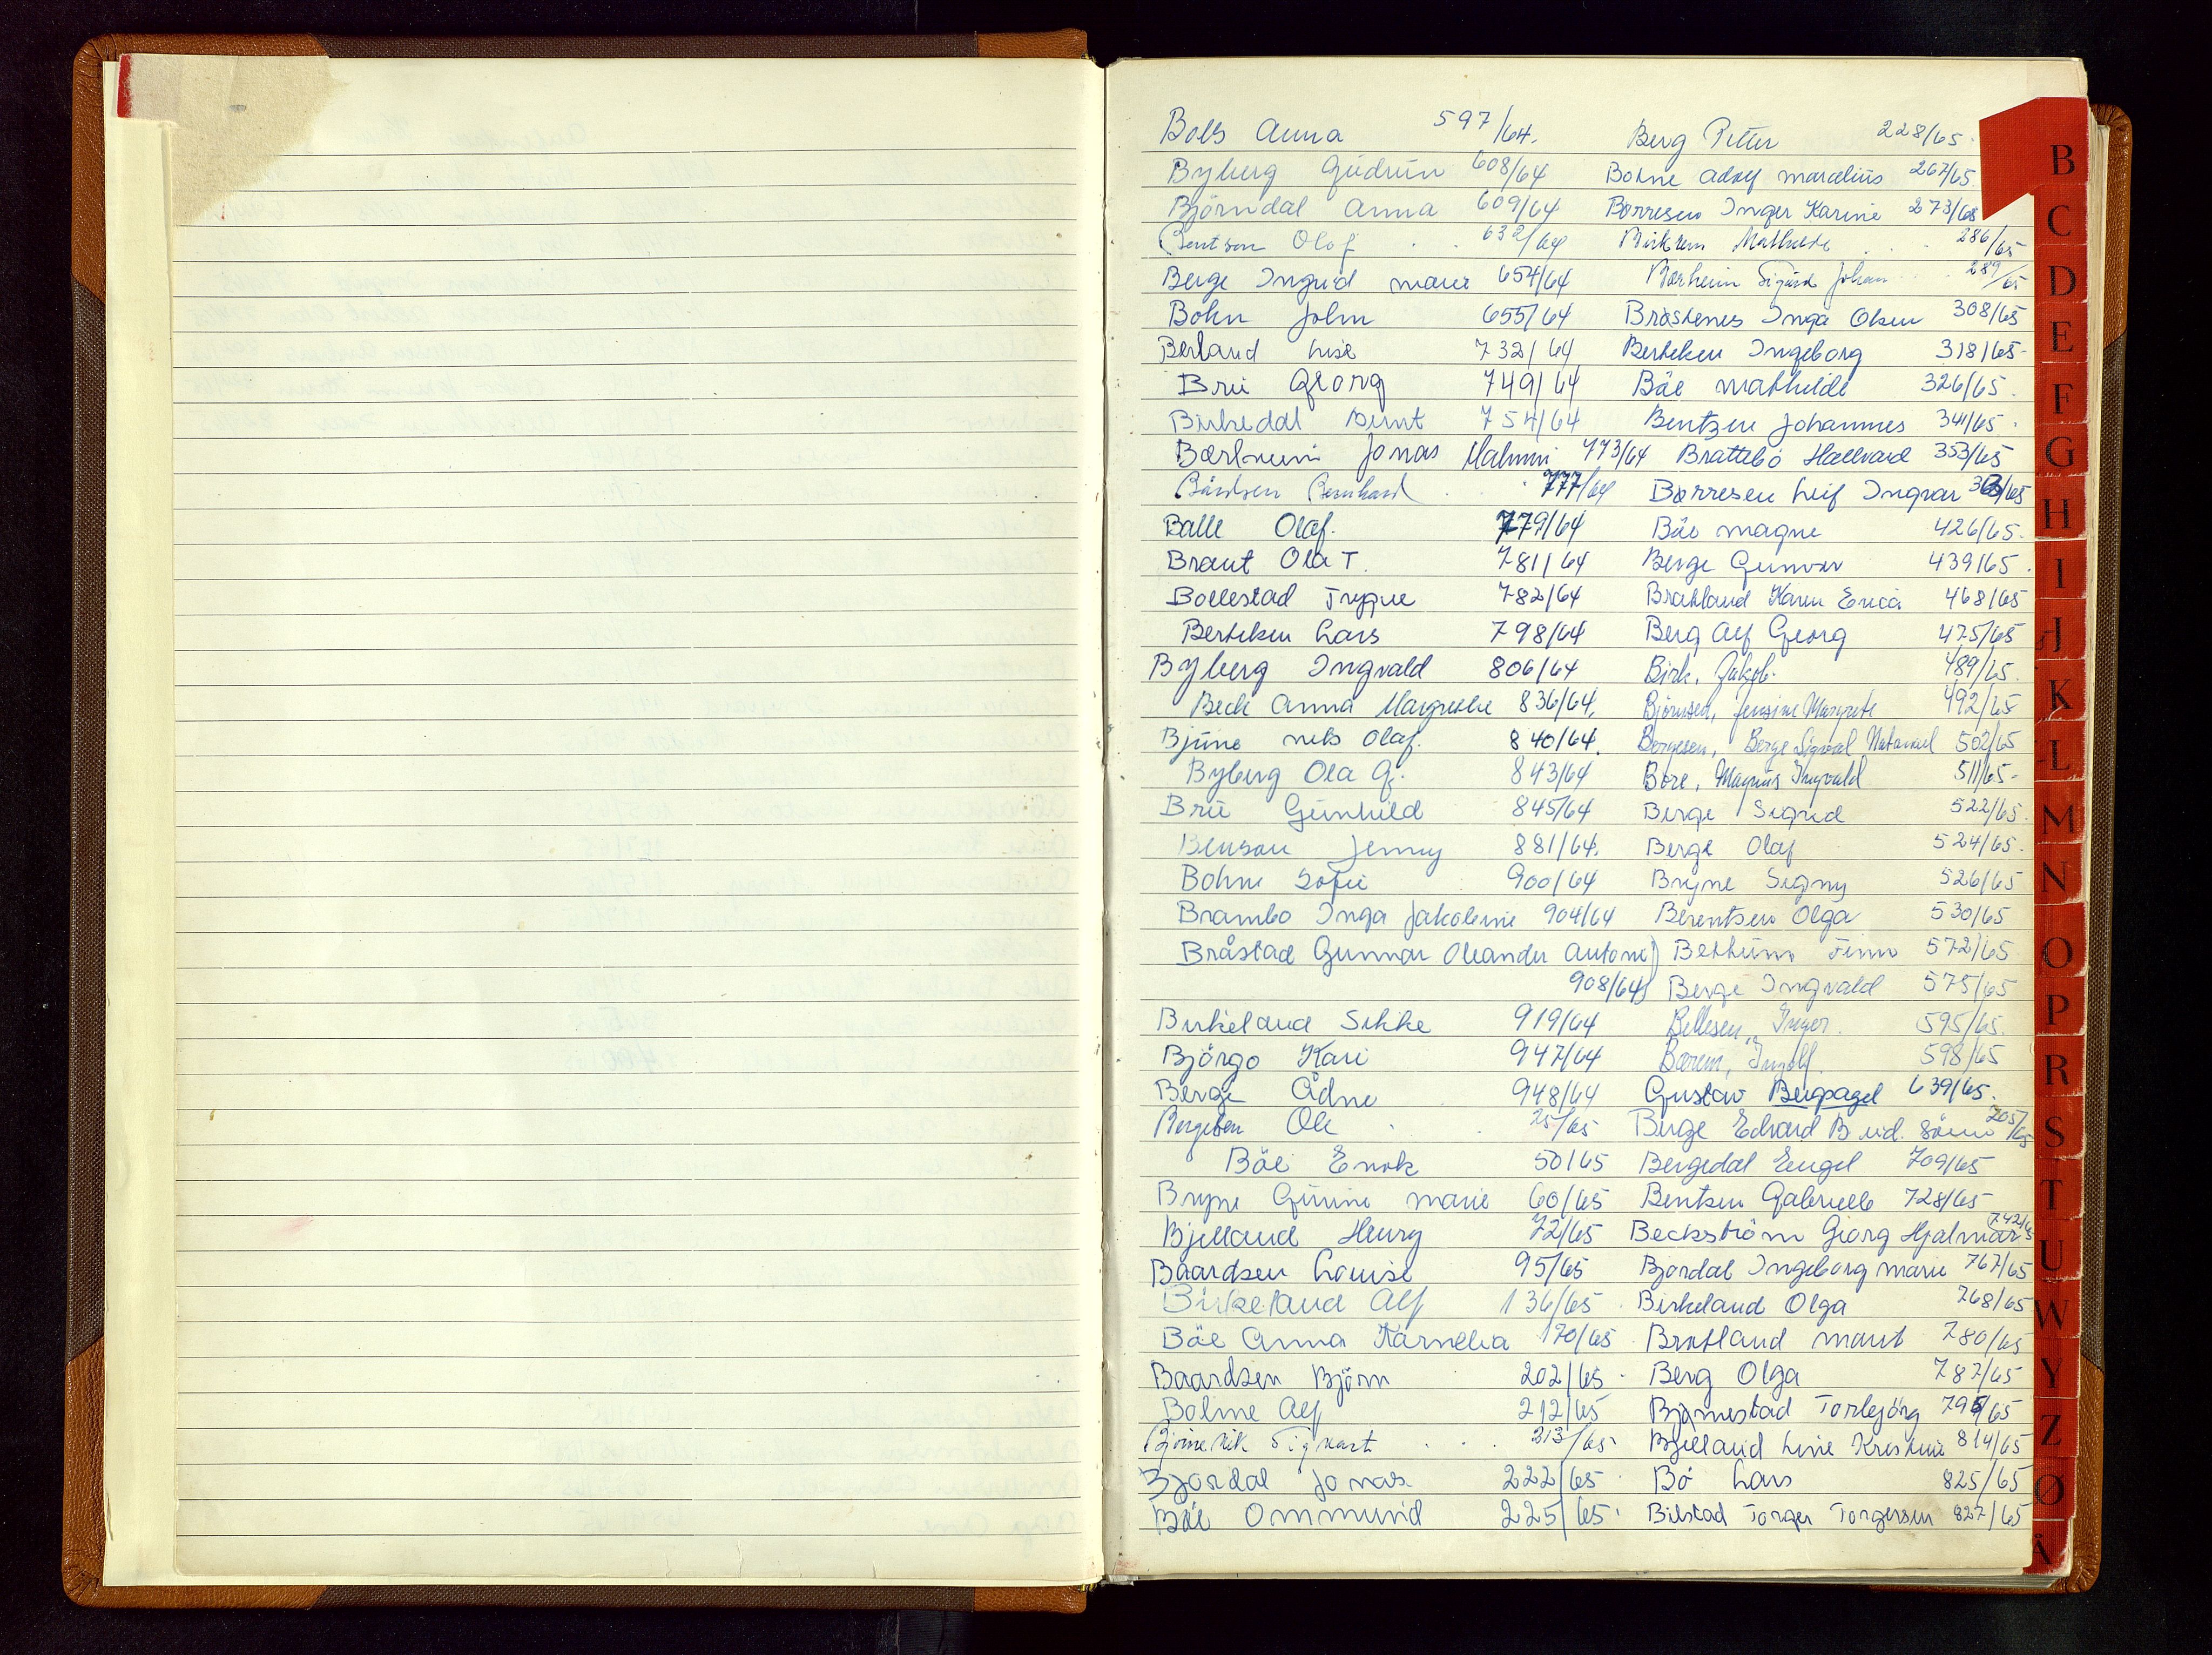 Bols Anna 597/64.
Byberg Gudrun 608/64
Björndal Anna 609/64
Bentsen Olaf 632/64
Berge Ingrid Marie 654/64
Bohn John 655/64
Berland Lise 732/64
Bru Georg 749/64
Birkedal Bernt 754/64
Bærheim Jonas Malmin 773/64
Bårdsen Bernhard 777/64
Balle Olaf. 779/64
Braut Ola T. 781/64
Bollestad Trygve 782/64
Bertelsen Lars 798/64
Byberg Ingvald 806/64
Beck Anna Margrethe 836/64.
Bjune Nels Olaf. 840/64.
Byberg Ola G. 843/64
Bru Gunhild 845/64
Benson Jenny 881/64.
Bohne Sofie 900/64
Brambo Inga Jakobine 904/64
Bråstad Gunnar Oleander Antoni
908/64
Birkeland Sikke 919/64
Björgo Kari 947/64
Berge Ådne 948/64
Bergesen Ole 25/65
Böe Enok 50/65
Bryne Gurine Marie 60/65
Bjelland Henry 72/65
Baardsen Louise 95/65
Birkeland Alf 136/65
Böe Anna Karnelia 170/65
Baardsen Björn 202/65
Bolme Alf 212/65
Sigvart 213/65
Bjordal Jonas 222/65
Böe Ommund 225/65
Berg Petter 228/65
Bohne Adolf Marcelius 267/65
Børresen Inger Karine 273/65
Birkrem Mathilde 286/65
Bærheim Sigurd Johan 289/65
Brastenes Inga Olsen 308/65
Bertelsen Ingeborg 318/65
Böe Mathilde 326/65.
Bentzen Johannes 341/65
Brattebö Hallvard 353/65
Børresen Leif Ingvar 363/65
Böe Magne 426/65.
Berge Gunvor 439/65.
Bratland Karen Erica 468/65
Berg Alf Georg 475/65
Birk, Jakob. 489/65.
Bjørnsen, Jensine Margrete 492/65
Børgesen, Berge Sigvael Natanael 502/65
Bore, Magnus Ingvald 511/65-
Berge Sigrid 522/65.
Berge Olaf 524/65.
Bryne Signy 526/65
Berentsen Olga 530/65
Finn 572/65
Berge Ingvald 575/65
Bellesen, Inger. 595/65.
Bærem, Ingolf. 598/65
Gustav Bergsagel 639/65.
Berge Edvard B. 705/65
Bergedal Engel 709/65
Bentsen Gabrielle 728/65
Beckström Georg Hjalmar 742/65
Bjordal Ingeborg Marie 767/65
Birkeland Olga 768/65
Bratland Marit 780/65
Berg Olga 787/65
Bjørnestad Torbjörg 795/65
Bjelland Line Kristine 814/65
Bö Lars 825/65
Bilstad Torger Torgersen 827/65
B
C
D
E
F
G
H
I
J
K
L
M
N
O
P
R
S
T
U
W
Y
Z
Ø
Å